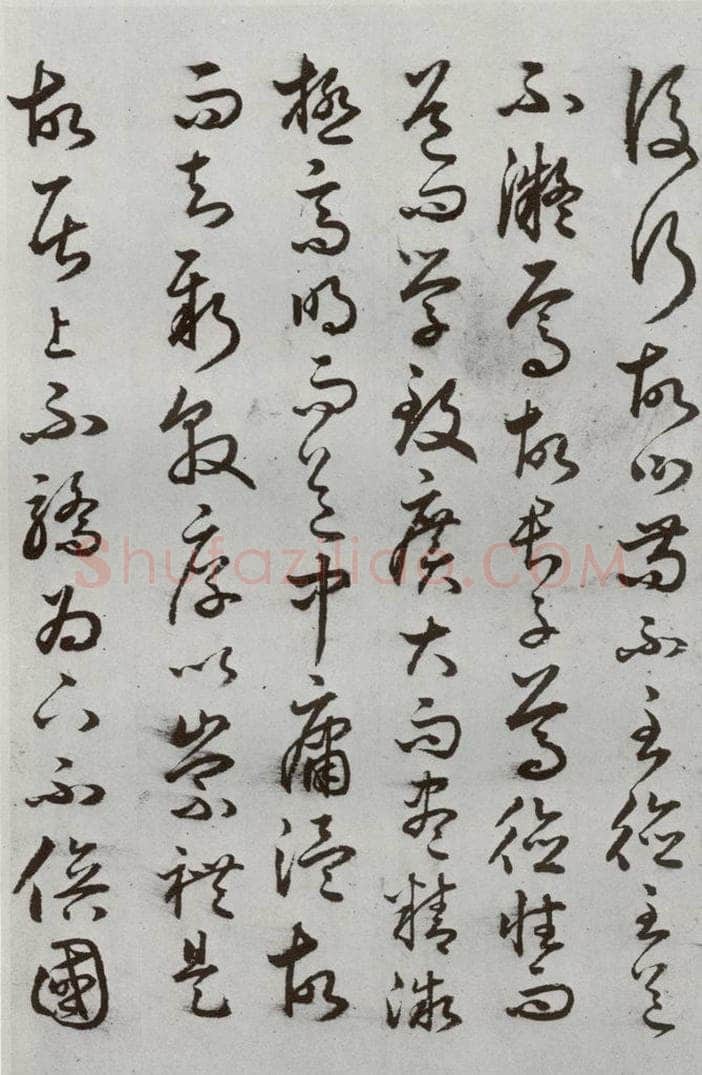 後行故曰苟不至德至道
不凝焉故君子尊德性而
道問學致廣大而盡精微
極高明而道中庸溫故
而知新敦厚以崇禮是
故居上不驕為下不倍國
Shufaziliao.COM